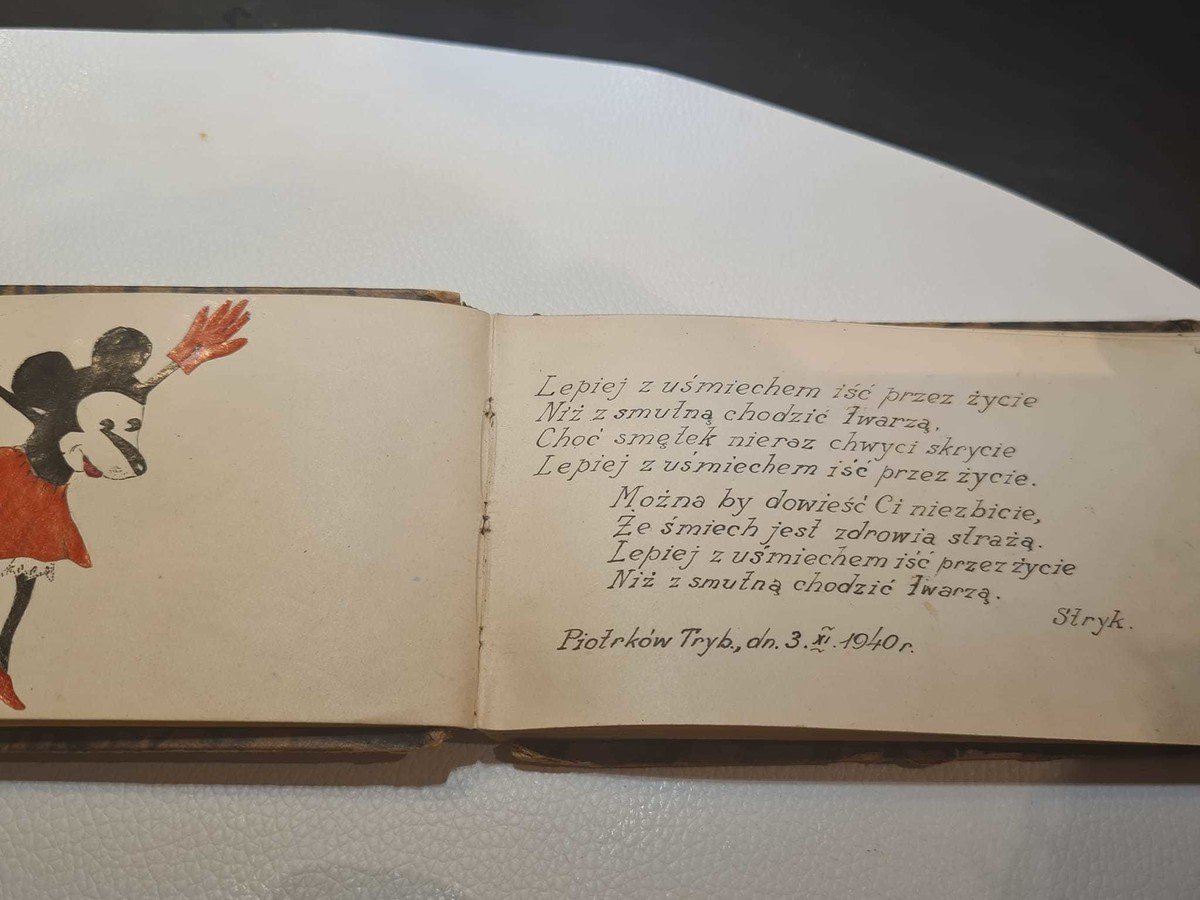 Lepiej z uśmiechem iść przez życie
Niż z smutną chodzić twarzą,
Choć smętek nieraz chwyci skrycie
Lepiej z uśmiechem iść przez życie.
Można by dowieść Ci niezbicie,
Że śmiech jest zdrowia strażą.
Lepiej z uśmiechem iść przez życie
Niż z smutną chodzić twarzą.
Stryk.
Piotrków Tryb., dn. 3.XI.1940 r.